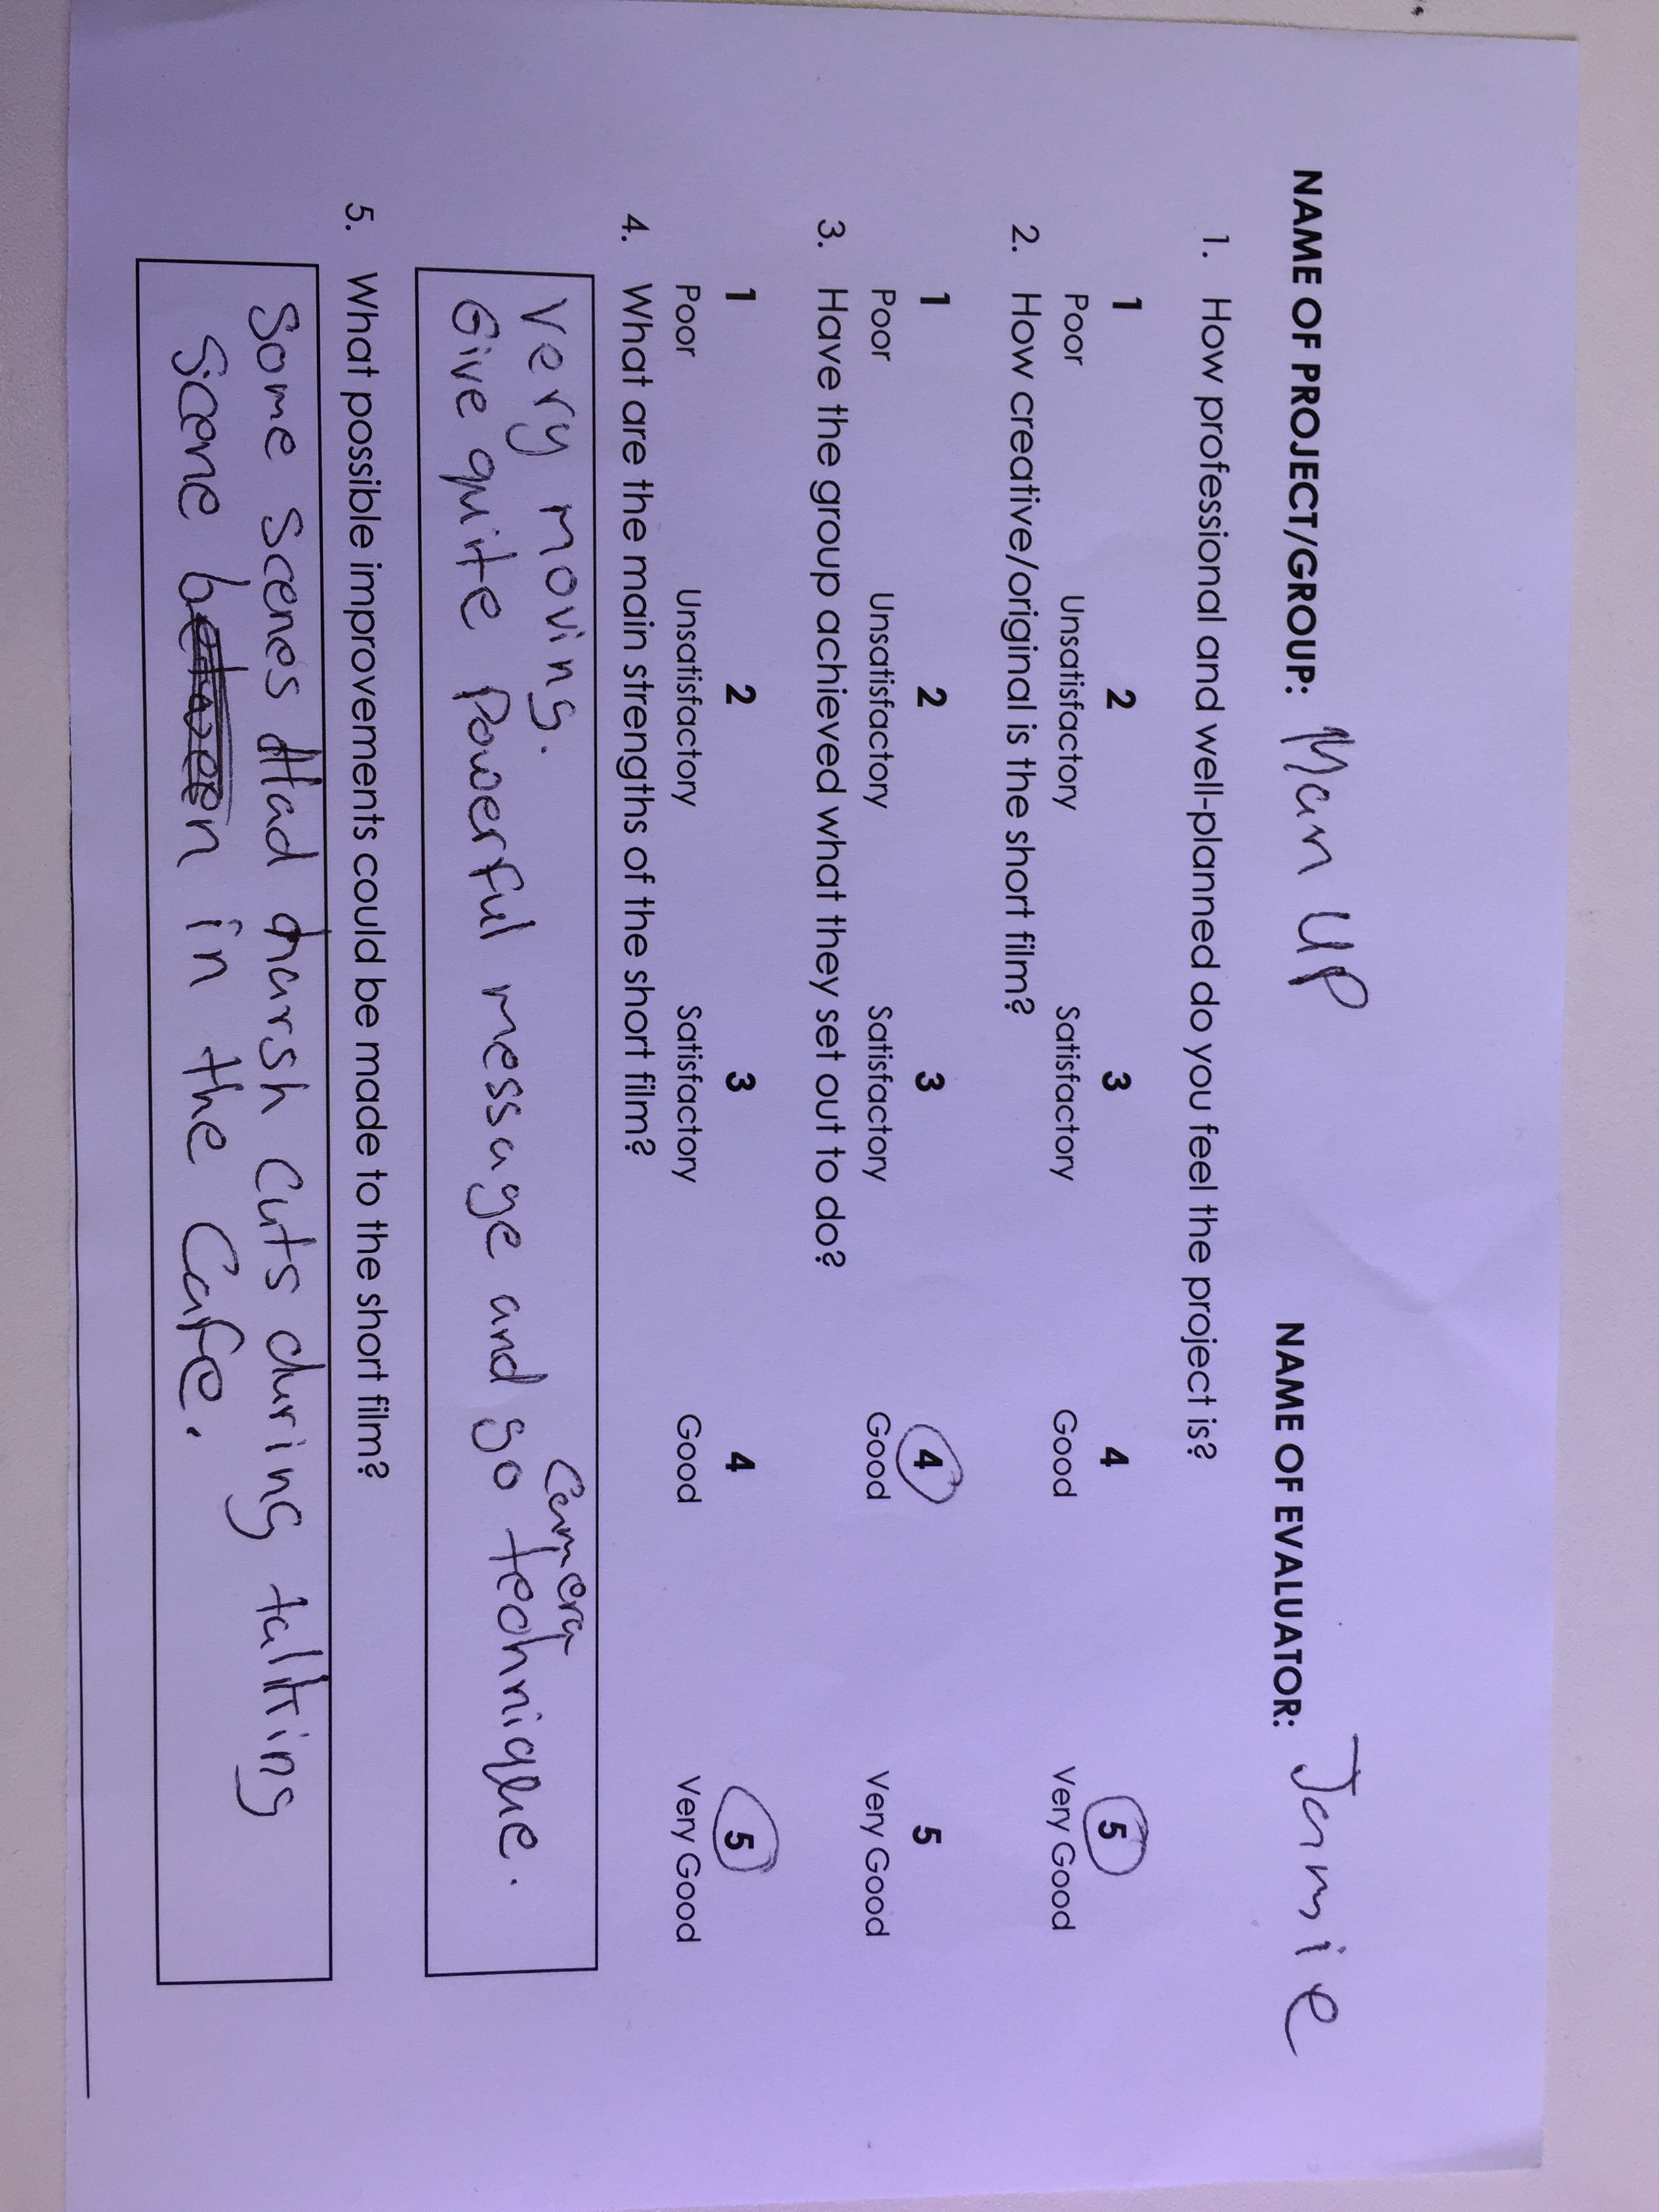 NAME OF PROJECT/GROUP: Man UP NAME OF EVALUATOR: Jamie
1. How professional and well-planned do you feel the project is?
1 2 3 4 5
Poor Unsatisfactory Satisfactory Good Very Good
2. How creative/original is the short film?
1 2 3 4 5
Poor Unsatisfactory Satisfactory Good Very Good
3. Have the group achieved what they set out to do?
1 2 3 4 5
Poor Unsatisfactory Satisfactory Good Very Good
4. What are the main strengths of the short film?
Very moving.
Camera
Give quite Powerful message and so technique.
5. What possible improvements could be made to the short film?
Some Scenes Had harsh Cuts during talking
Scene in the Cafe.